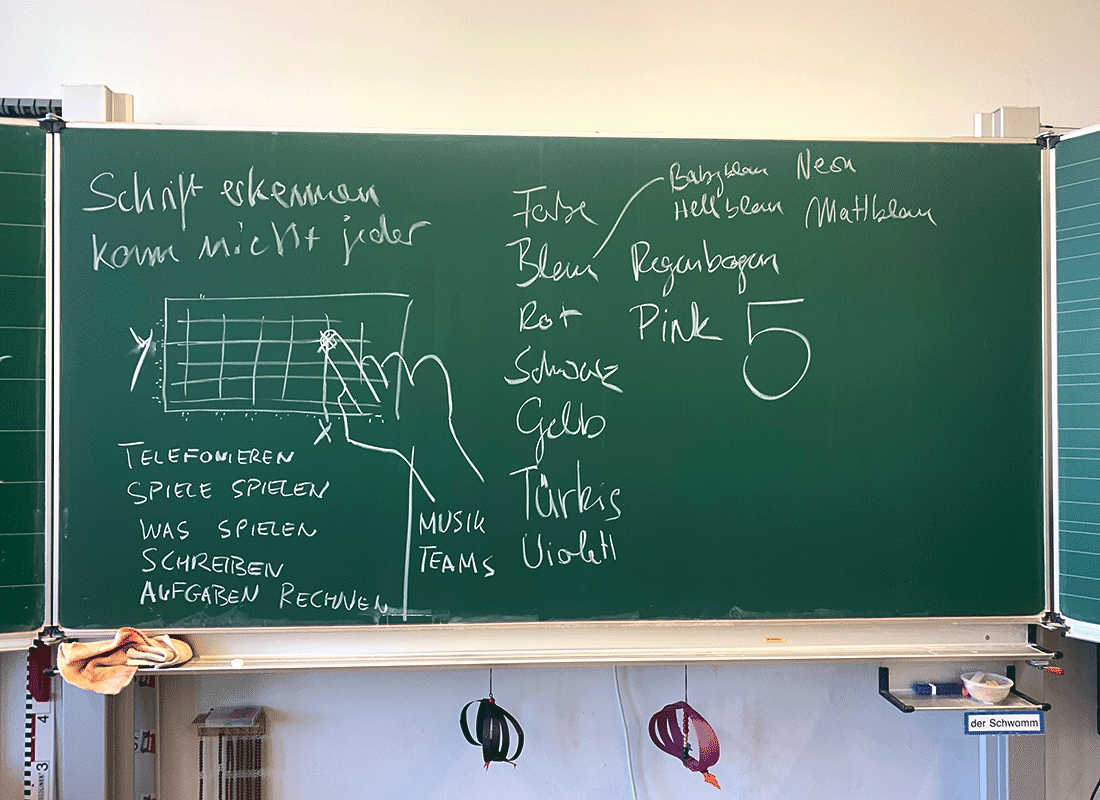 Schrift erkennen
kann nicht jeder
Y
X
TELEFONIEREN
SPIELE SPIELEN
WAS SPIELEN
SCHREIBEN
AUFGABEN RECHNEN
MUSIK
TEAMS
Farbe
Blau
Rot
Schwarz
Gelb
Türkis
Violett
Babyblau Neon
Hellblau Mattblau
Regenbogen
Pink 5
der Schwamm
4
3